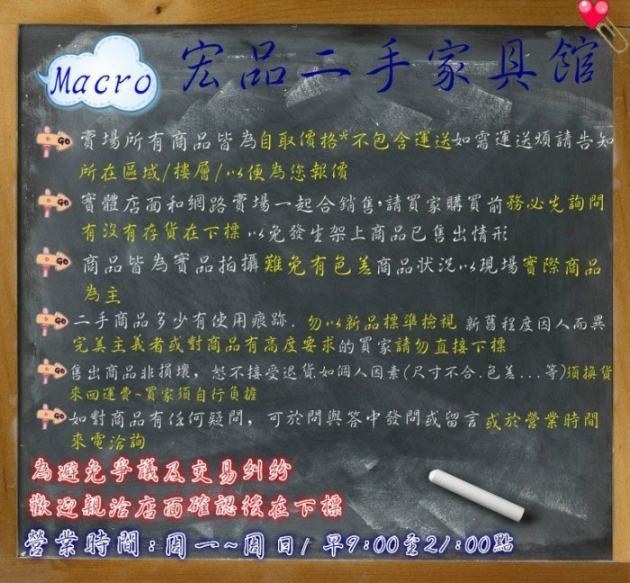 Macro 宏品二手家具館
Go 賣場所有商品皆為自取價格*不包含運送如需運送煩請告知
所在區域/樓層/以便為您報價
Go 實體店面和網路賣場一起合銷售,請買家購買前務必先詢問
有沒有存貨在下標以免發生架上商品已售出情形
Go 商品皆為實品拍攝難免有色差商品狀況以現場實際商品
為主
Go 二手商品多少有使用痕跡.勿以新品標準檢視 新舊程度因人而異
完美主義者或對商品有高度要求的買家請勿直接下標
Go 售出商品非損壞,恕不接受退貨如個人因素(尺寸不合.色差...等)須換貨
來回運費~買家須自行負擔
Go 如對商品有任何疑問,可於問與答中發問或留言或於營業時間
來電洽詢
為避免爭議及交易糾紛
歡迎親洽店面確認後在下標
營業時間:周一~周日/早9:00至21:00點